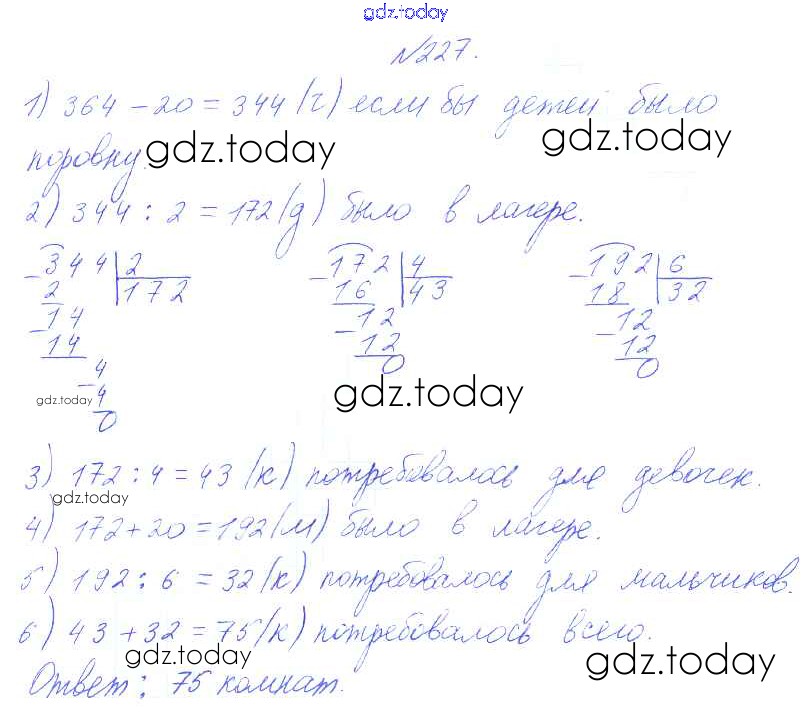 gdz.today
№227.
1) 364 - 20 = 344 (ч) если бы детей было
поровну.
gdz.today
gdz.today
2) 344 : 2 = 172 (д) было в лагере.
344 2
2 172
14
14
4
4
0
172 4
16 43
12
12
0
192 6
18 32
12
12
0
gdz.today
gdz.today
3) 172 : 4 = 43 (к) потребовалось для девочек.
gdz.today
4) 172 + 20 = 192 (м) было в лагере.
5) 192 : 6 = 32 (к) потребовалось для мальчиков.
6) 43 + 32 = 75 (к) потребовалось всего.
gdz.today
gdz.today
Ответ: 75 комнат.